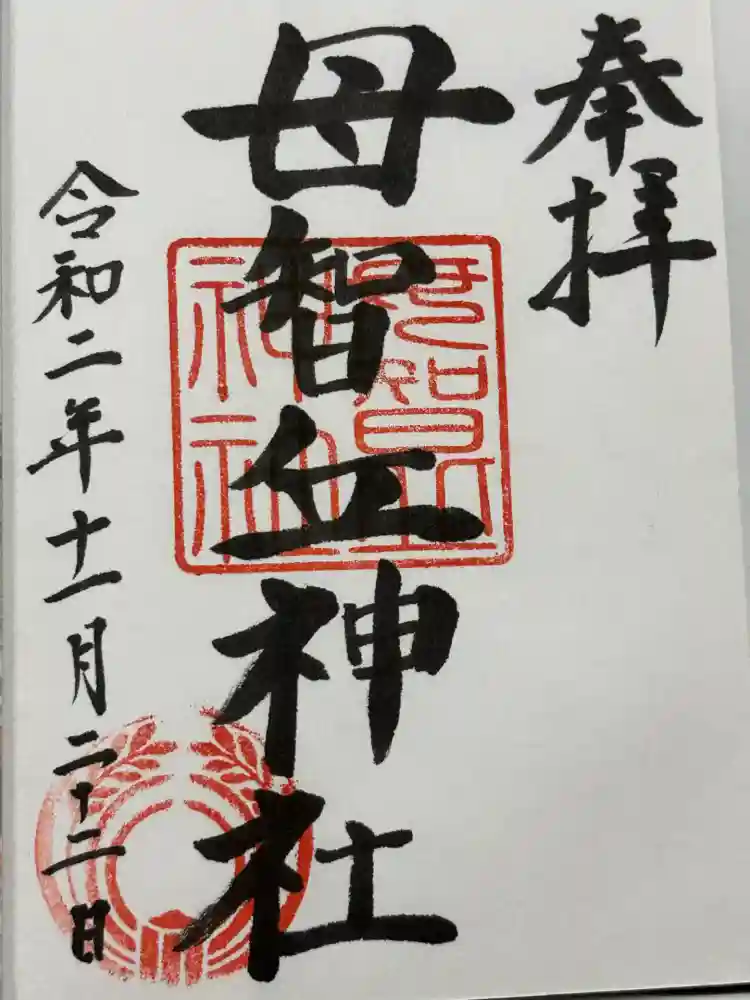 奉拝
母智丘神社
母智丘
神社
令和二年十一月二十二日